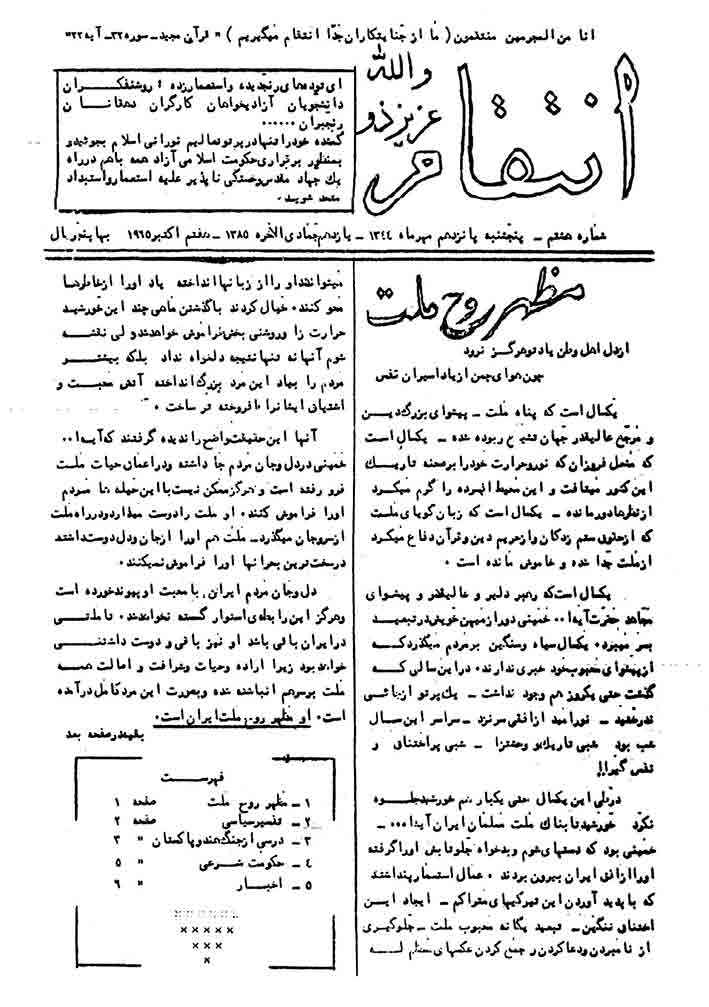 انا من المجرمین منتقمون ( ما از جنایتکاران جدا انتقام میگیریم ) " قرآن مجید ـ سوره ۳۲ ـ آیه ۲۲"
والله
عزیز ذو
انتقام
ای توده های رنجدیده و استعمار زده ؛ روشنفکران
دانشجویان آزادیخواهان کارگران دهقانان
رنجبران ......
گمنده خود را تنها در پرتو تعالیم نورانی اسلام بجوئید و
بمنظور برقراری حکومت اسلامی آزاد همه باهم در راه
یک جهاد مقدس و خستگی ناپذیر علیه استعمار و استبداد
متحد شوید .
شماره هشتم ـ پنجشنبه پانزدهم مهر ماه ۱۳۴۴ ـ یازدهم جمادی الاخره ۱۳۸۵ ـ هفتم اکتبر ۱۹٦۵ بها پنجریال
مظهر روح ملت
از دل اهل وطن یاد تو هرگز نرود
چون هوای چمن از یاد اسیران قفس
یکسال است که پناه ملت ـ پیشوای بزرگ دین
و مرجع عالیقدر جهان تشیع ربوده شده ـ یکسال است
که مشعل فروزان که نور و حرارت خود را بر صحنه تاریک
این کشور میتافت و این محیط افسرده را گرم میکرد
از نظرها دور مانده ـ یکسال است که زبان گویای ملت
که از حقوق ستم زدگان و از حریم دین و قرآن دفاع میکرد
از ملت جدا شده و خاموش مانده است .
یکسال است که رهبر دلیر و عالیقدر و پیشوای
مجاهد حضرت آیه ا... خمینی دور از میهن خویش در تبعید
بسر میبرد . یکسال سیاه و سنگین بر مردم میگذرد که
از پیشوای محبوب خود خبری ندارند . در این سالی که
گذشت حتی یکروز هم وجود نداشت ـ یک پرتو از تابشی
ندرخشید ـ نور امید از افقی سر نزد ـ سراسر این سال
شب بود شبی تاریک و وحشتزا ـ شبی پر اختناق و
نفس گیر !!
در طی این یکسال حتی یکبار هم خورشید جلوه
نکرد خورشید تابناک ملت مسلمان ایران آیه ا... ـ
خمینی بود که دستهای شوم و بدخواه جلو تابش او را گرفته
او را از افق ایران بیرون بردند . عمال استعمار پنداشتند
که با پدید آوردن این تیرگیهای متراکم ـ ایجاد این
اختناق ننگین ـ تبعید یگانه محبوب ملت ـ جلوگیری
از نام بردن و دعا کردن و جمع کردن عکسهای معظم له
میتوانند او را از زبانها انداخته یاد او را از خاطرها
محو کنند . خیال کردند با گذشتن ماهی چند این خورشید
حرارت زا و روشنی بخش فراموش خواهد شد ولی نقشه
شوم آنها نه تنها نتیجه دلخواه نداد بلکه بیشتر
مردم را بیاد این مرد بزرگ انداخته آتش محبت و
اشتیاق ایشانرا افروخته تر ساخت .
آنها این حقیقت واضح را ندیده گرفتند که آیه ا...
خمینی در دل و جان مردم جا داشته و در اعماق حیات ملت
فرو رفته است و هرگز ممکن نیست با این حیله ها مردم
او را فراموش کنند . او ملت را دوست میدارد و در راه ملت
از سر و جان میگذرد ـ ملت هم او را از جان و دل دوست داشتند
در سخت ترین بحرانها او را فراموش نمیکنند .
دل و جان مردم ایران . با محبت او پیوند خورده است
و هرگز این رابطه ی استوار گسسته نخواهد شد . تا ملتی
در ایران باقی باشد او نیز باقی و دوست داشتنی
خواهد بود زیرا اراده و حیات و شرافت و اصالت همه
ملت بر سر هم انباشته شده و بصورت این مرد کامل درآمده
است . او مظهر روح ملت ایران است .
بقیه در صفحه بعد
فهرست
۱ ـ مظهر روح ملت صفحه ۱
۲ ـ تفسیر سیاسی صفحه ۲
۳ ـ درسی از جنگ هند و پاکستان " ۳
۴ ـ حکومت شرعی " ۵
۵ ـ اخبار " ۶
×××××
×××
×